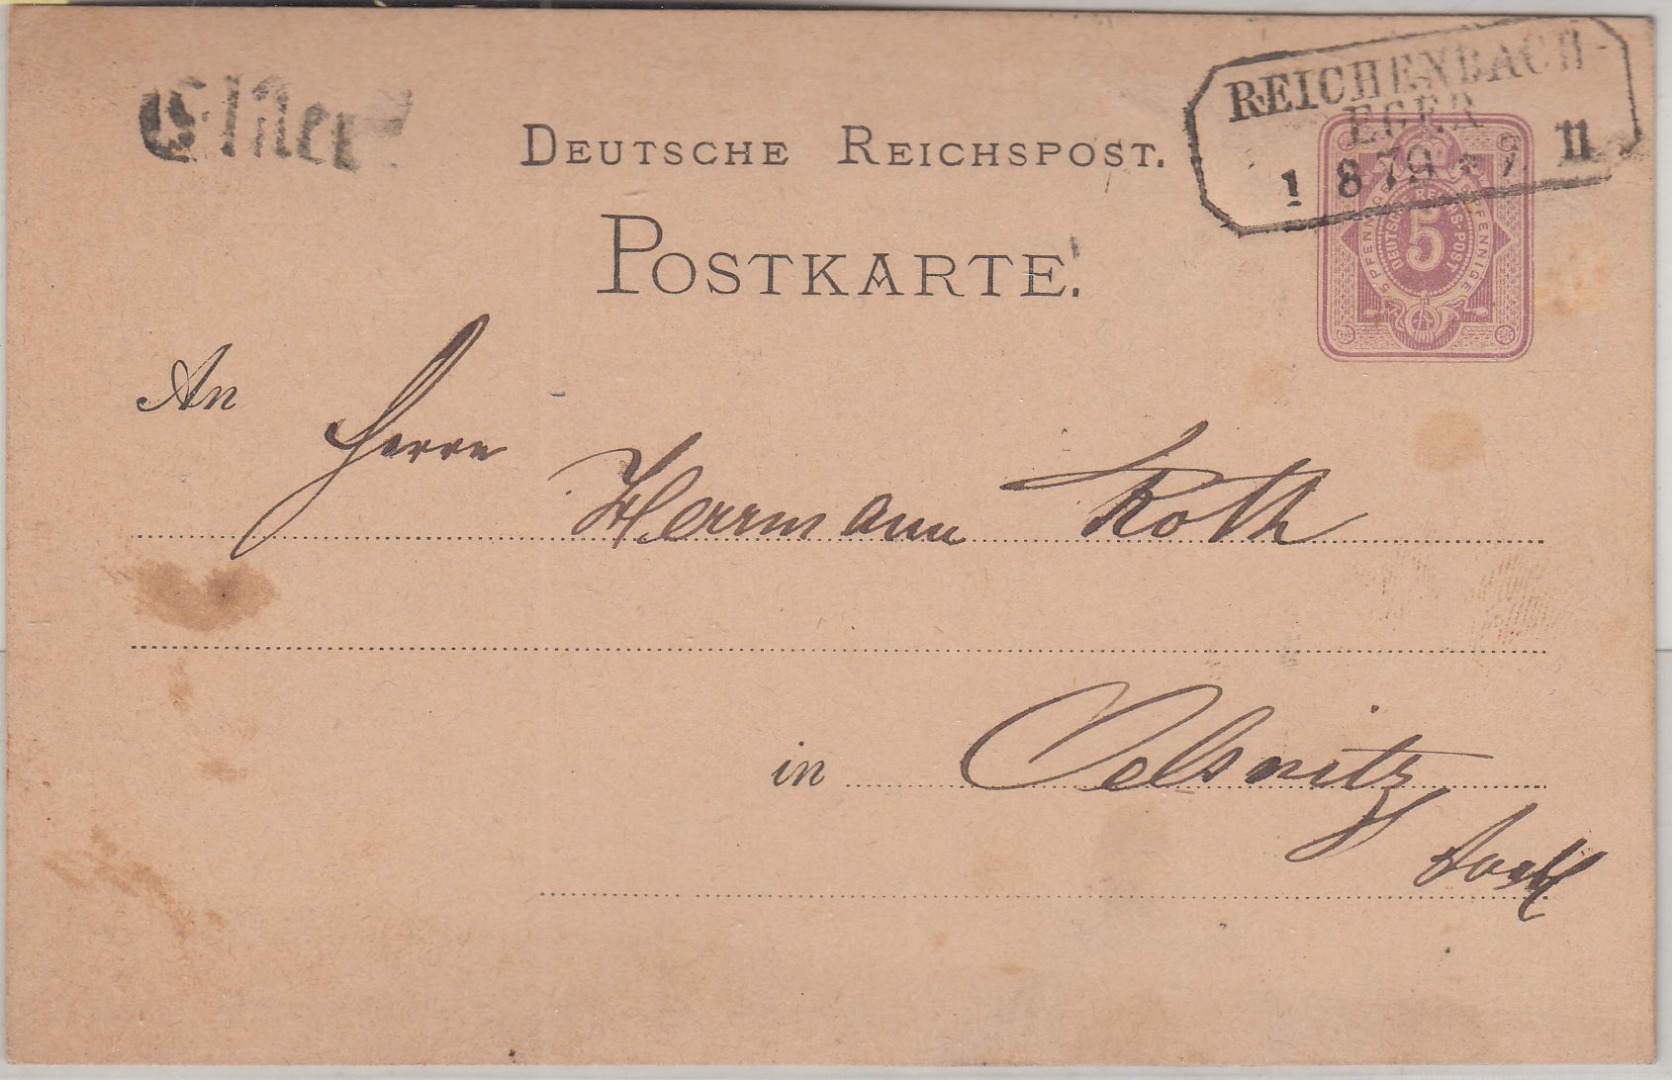 Elster
REICHENBACH-
EGER
1 8 79 * 9. II
DEUTSCHE REICHSPOST.
POSTKARTE.
5 PFENNIGE 5 PFENNIGE
DEUTSCHE REICHS-POST
5
An
Herrn
Herrmann Roth
in Oelsnitz